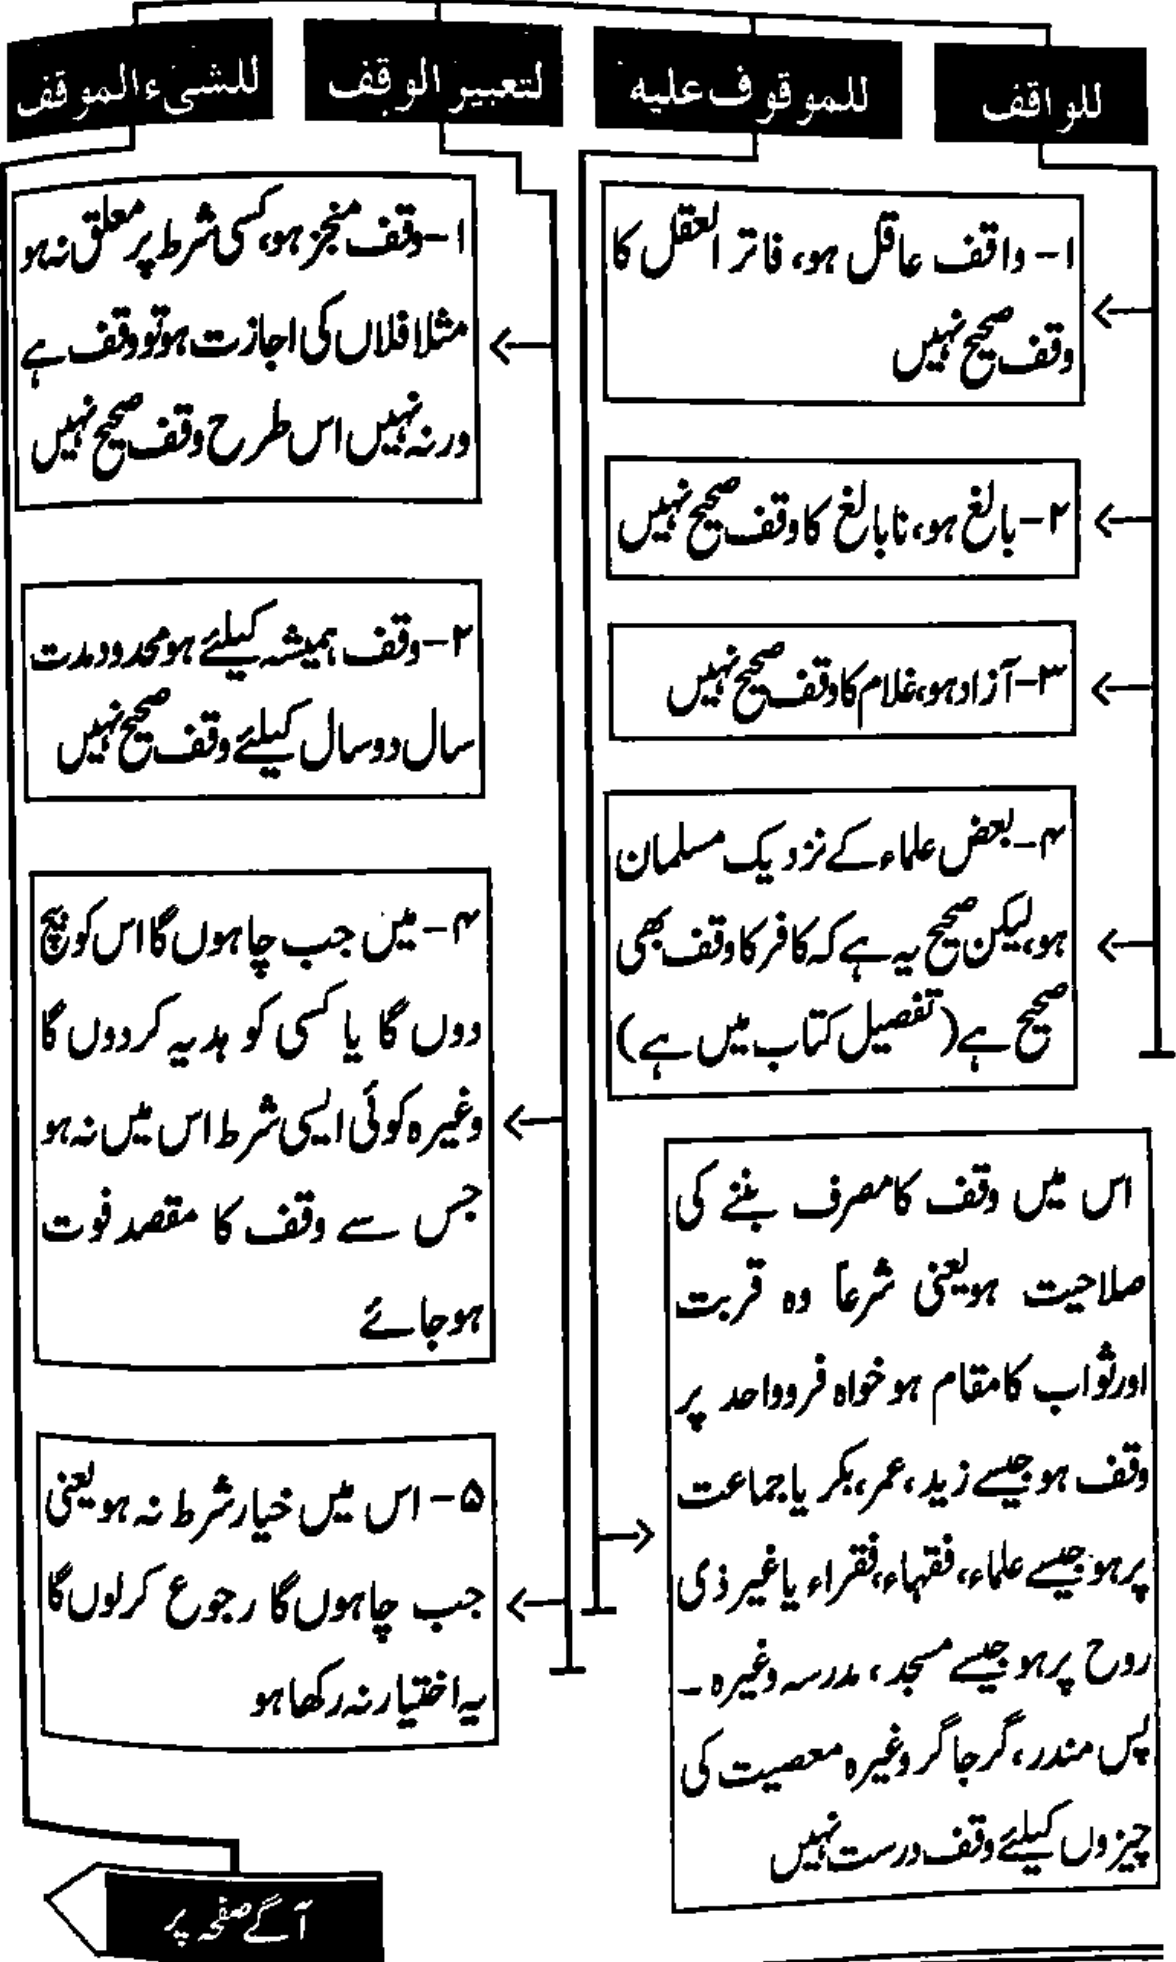 للواقف
للموقوف علیہ
لتعبیر الوقف
للشیء الموقف
۱- واقف عاقل ہو، فاتر العقل کا
وقف صحیح نہیں
۲- بالغ ہو، نابالغ کا وقف صحیح نہیں
۳- آزاد ہو، غلام کا وقف صحیح نہیں
۴- بعض علماء کے نزدیک مسلمان
ہو، لیکن صحیح یہ ہے کہ کافر کا وقف بھی
صحیح ہے (تفصیل کتاب میں ہے)
اس میں وقف کا مصرف بننے کی
صلاحیت ہو یعنی شرعاً وہ قربت
اور ثواب کا مقام ہو خواہ فرد واحد پر
وقف ہو جیسے زید، عمر، بکر یا جماعت
پر ہو جیسے علماء، فقہاء، فقراء یا غیر ذی
روح پر ہو جیسے مسجد، مدرسہ وغیرہ -
پس مندر، گرجا گر وغیرہ معصیت کی
چیزوں کیلئے وقف درست نہیں
۱- وقف منجز ہو، کسی شرط پر معلق نہ ہو
مثلا فلاں کی اجازت ہو تو وقف ہے
ورنہ نہیں اس طرح وقف صحیح نہیں
۲- وقف ہمیشہ کیلئے ہو محدود مدت
سال دو سال کیلئے وقف صحیح نہیں
۴- میں جب چاہوں گا اس کو بیچ
دوں گا یا کسی کو ہدیہ کردوں گا
وغیرہ کوئی ایسی شرط اس میں نہ ہو
جس سے وقف کا مقصد فوت
ہوجائے
۵- اس میں خیار شرط نہ ہو یعنی
جب چاہوں گا رجوع کرلوں گا
یہ اختیار نہ رکھا ہو
آگے صفحہ پر